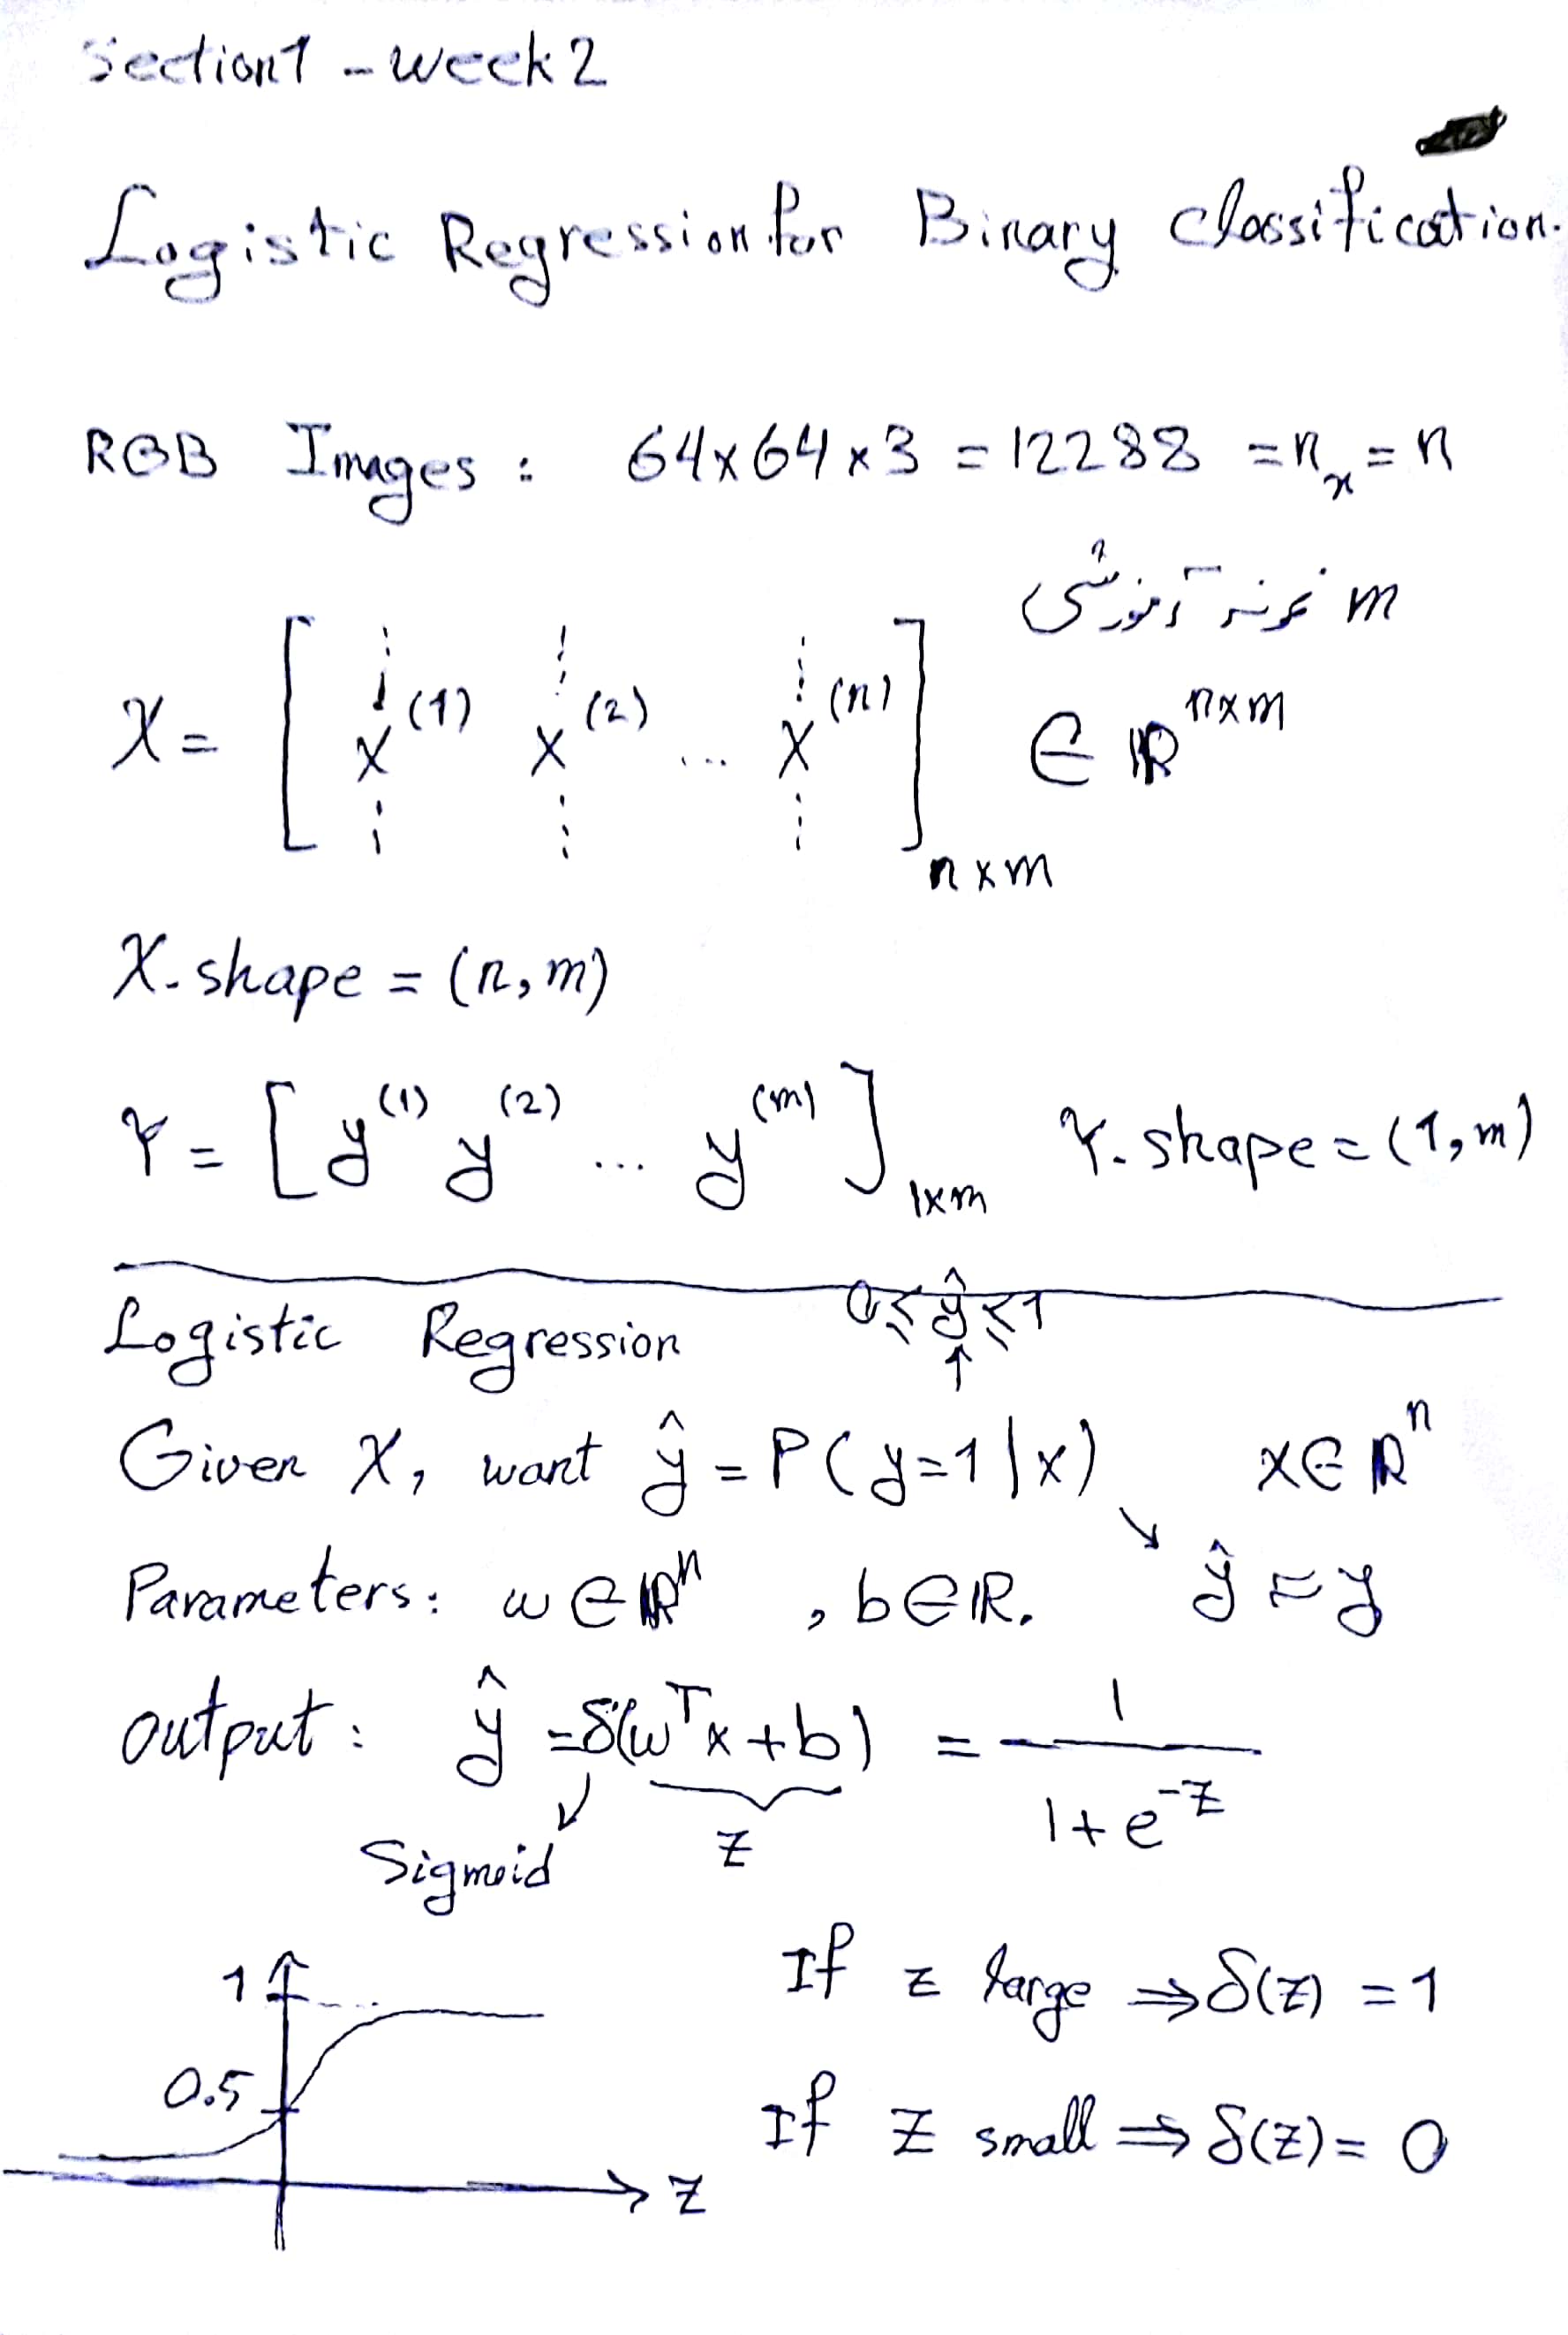 Section1 - week2
Logistic Regression for Binary Classification.
RGB Images : 64x64x3 = 12288 = n_x = n
m نمونه آموزشی
X = [ x^(1) x^(2) ... x^(n) ]_nxm ∈ ℝ^nxm
X.shape = (n, m)
Y = [ y^(1) y^(2) ... y^(m) ]_1xm Y.shape = (1, m)
Logistic Regression 0 ≤ ŷ ≤ 1
↑
Given X, want ŷ = P(y=1|x) x ∈ ℝ^n
Parameters: w ∈ ℝ^n , b ∈ ℝ. ↘ ŷ ≈ y
output : ŷ = δ(w^T x + b) = 1 / (1+e^-z)
Sigmoid z
If z large ⇒ δ(z) = 1
1
0.5
If z small ⇒ δ(z) = 0
z